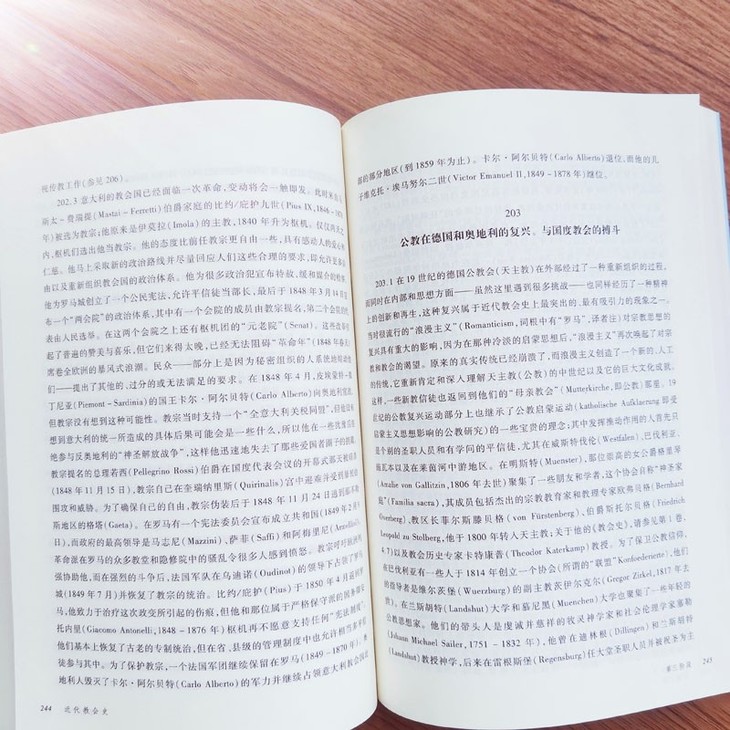 统传教工作(参见 206)。
202.3 意大利的教会国已经面临一次革命,变动将会一触即发。此时
斯太-费瑞提(Mastai-Ferretti)伯爵家庭的比约/庇护九世(Pius IX,1848-1878
年)被选为教宗;他原来是伊莫拉(Imola)的主教,1840 年升为枢机。仅仅两天之
内,枢机们选出他当教宗。他的态度比前任教宗更自由一些,具有感动人的爱心和
仁慈。他马上采取新的政治路线并尽量回应人们这些合理的要求,即允许更多自
由以及重新组织教会国的政治体系。他为很多政治犯宣布特赦,缓和舆论的检察,
他为罗马城创立了一个公民宪法,允许平信徒当部长,最后于 1848 年 3 月 14 日宣
布一个“两会院”的政治体系,其中有一个会院的成员由教宗提名,第二个会院的代
表由人民选举。在这两个会院之上还有枢机团的“元老院”(Senat)。这些改革引
起了普遍的赞美与喜乐,但它们来得太晚,已经无法阻碍“革命年”(1848 年春天)
席卷全欧洲的暴风式浪潮。民众——部分上是因为秘密组织的人系统地煽动他
们——提出了其他的、过分的或无法满足的要求。在 1848 年 4 月,皮埃蒙特-撒
丁尼亚(Piemont-Sardinia)的国王卡尔·阿尔贝特(Carlo Alberto)向奥地利宣战,
但教宗没有想到这种可能性。教宗当时支持一个“全意大利关税同盟”,但他没有
想到意大利的统一所造成的具体后果可能会是一些什么,所以他在一些犹豫后拒
绝参与反奥地利的“神圣解放战争”,这样他迅速地失去了那些爱国者面子的拥戴。
教宗提名的总理若西(Pellegrino Rossi)伯爵在国度代表会议的开幕式那天被暗杀
(1848 年 11 月 15 日),教宗自己在奎瑞纳里斯(Quirinalis)宫中避难并受到暴民的
围攻和威胁。为了确保自己的自由,教宗伪装后于 1848 年 11 月 24 日逃到那不勒
斯地区的格塔(Gaeta)。在罗马有一个宪法委员会宣布成立共和国(1849 年 2 月 9
日),而政府的最高领导是马志尼(Mazzini)、萨菲(Saffi)和阿梅里尼(Armellini)。
革命派在罗马的众多教堂和隐修院中的骚乱令很多人感到愤怒。教宗呼吁欧洲列
强协助他,而在强烈的斗争后,法国军队在乌迪诺(Oudinot)的领导下占领了罗马
城(1849 年 7 月)并恢复了教宗的统治。比约/庇护(Pius)于 1850 年 4 月回到罗
马,他致力于治疗这次政变所引起的伤痕,但他和那位属于严格保守派的国务卿安
托内里(Giacomo Antonelli,1848-1876 年)枢机再不愿意支持任何“宪法制度”。
他们基本上恢复了古老的专制统治,但在省、县级的管理制度中也允许相当多平信
徒参与其中。为了保护教宗,一个法国军团继续保留在罗马(1849-1870 年)。奥
地利人毁灭了卡尔·阿尔贝特(Carlo Alberto)的军力并继续占领意大利教会国北
244 近代教会史
部的部分地区(到 1859 年为止)。卡尔·阿尔贝特(Carlo Alberto)退位,而他的儿
子维克托·埃马努尔二世(Victor Emanuel II,1849-1878 年)继位。
203
公教在德国和奥地利的复兴、与国度教会的搏斗
203.1 在 19 世纪的德国公教会(天主教)在外部经过了一种重新组织的过程,
而同时在内部和思想方面——虽然这里遇到很多挑战——也同样经历了一种精神
上的创新和再生,这种复兴属于近代教会史上最突出的、最有吸引力的现象之一。
当时很流行的“浪漫主义”(Romanticism,词根中有“罗马”,译者注)对宗教思想的
复兴具有重大的影响,因为在那种冷淡的启蒙思想后,“浪漫主义”再次唤起了对宗
教和教会的渴望。原来的真实传统已经崩溃了,而浪漫主义创造了一个新的、人工
的传统,它重新肯定和深入理解天主教(公教)的中世纪以及它的文大文化成就,
这样,一些新教信徒也返回到他们的“母亲教会”(Mutterkirche,即公教)那里。19
世纪的公教复兴运动部分上也继承了公教启蒙运动(katholische Aufklaerung 即受
启蒙主义思想影响的公教研究)的一些宝贵的理念;其中发挥推动作用的人首先只
是个别的圣职人员和有学问的平信徒,尤其在威斯特伐伦(Westfalen)、巴伐利亚、
施瓦本以及在莱茵河中游地区。在明斯特(Muenster),那位崇高的女公爵格里琴
(Amalie von Gallitzin,1806 年去世)聚集了一些朋友和学者,这个协会自称“神圣家
庭”(Familia sacra),其成员包括杰出的宗教教育家和教理专家欧弗贝格(Bernhard
Overberg)、教区长菲尔斯滕贝格(von Fürstenberg)、伯爵斯托尔贝格(Friedrich
Leopold zu Stolberg,他于 1800 年转入天主教;关于他的《教会史》,请参见第 1 卷,
4.7)以及教会历史专家卡特康普(Theodor Katerkamp)教授。为了保卫公教信仰,
在巴伐利亚有一些人于 1814 年创立一个协会(所谓的“联盟”Konfoederierte),他们
的指导者是维尔茨堡(Wuerzburg)的副主教茨伊尔克尔(Gregor Zirkel,1817 年去
世)。在兰斯胡特(Landshut)大学和慕尼黑(Muenchen)大学也聚集了一些年轻的
公教思想家。他们的带头人是虔诚并慈祥的牧灵神学家和社会伦理学家塞勒
(Johann Michael Sailer,1751-1832 年),他曾在迪林根(Dillingen)和兰斯胡特
(Landshut)教授神学,后来在雷根斯堡(Regensburg)任大堂圣职人员并被祝圣为主
245